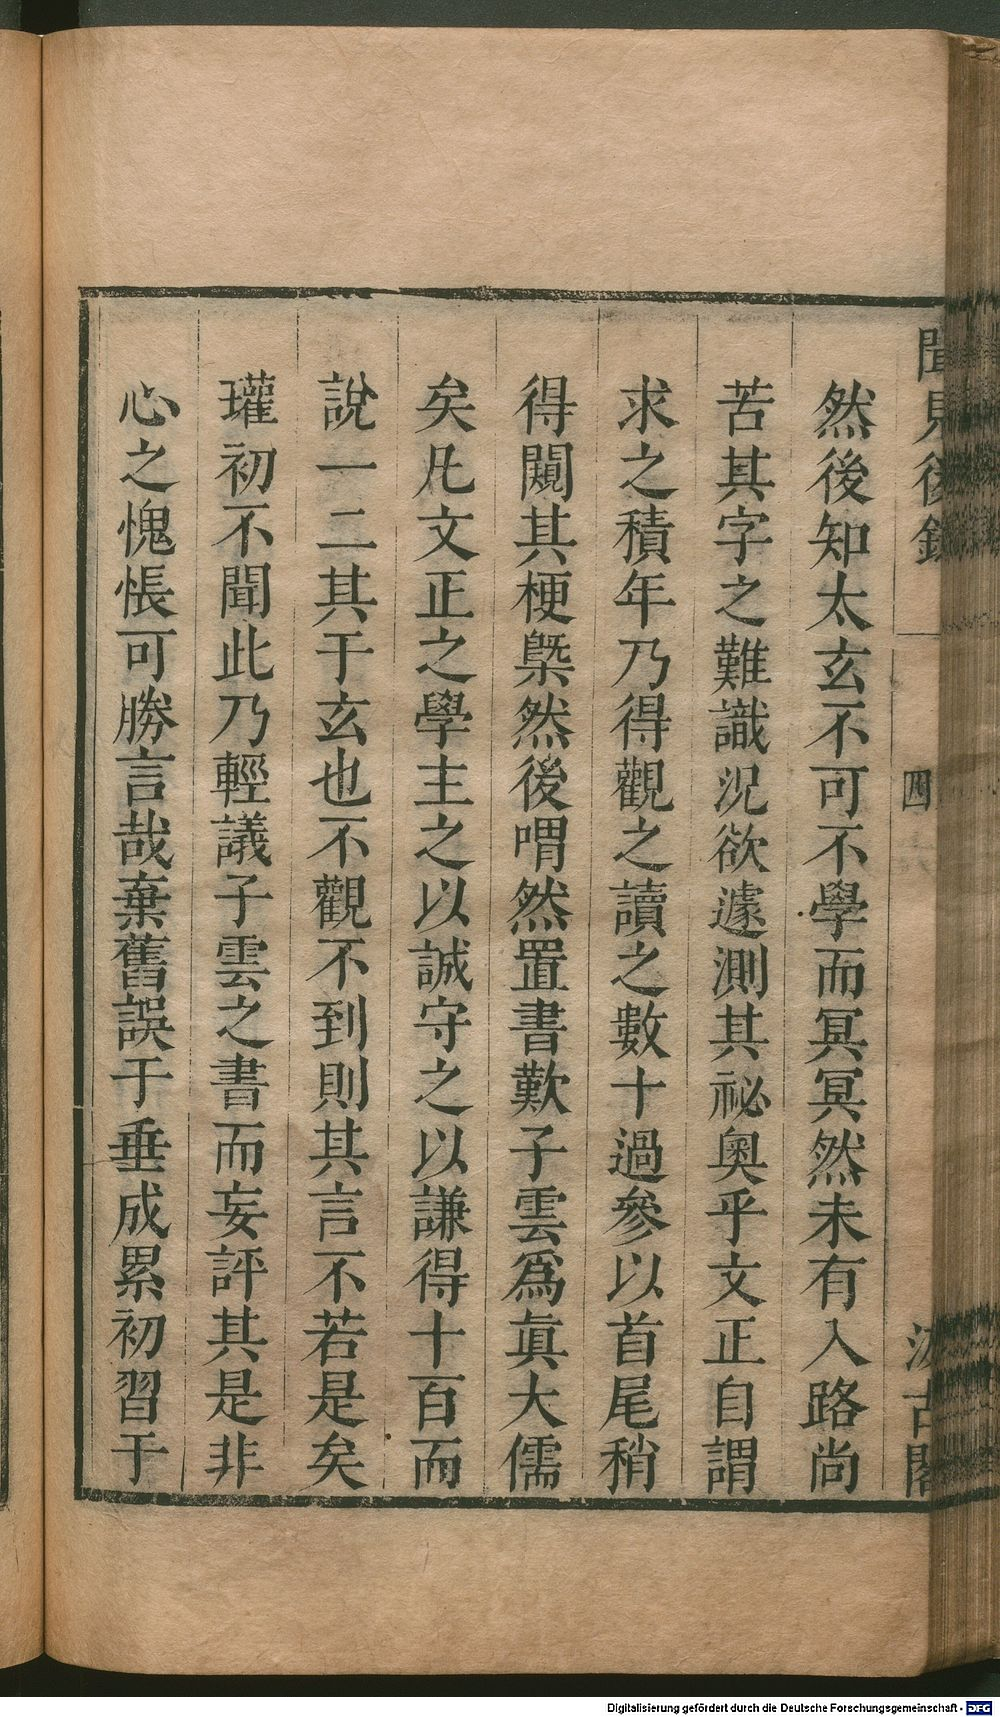 聞見後錄
四
汲古閣
然後知太玄不可不學而冥冥然未有入路尚
苦其字之難識況欲遽測其祕奧乎文正自謂
求之積年乃得觀之讀之數十過參以首尾稍
得闚其梗槩然後喟然置書歎子雲爲眞大儒
矣凡文正之學主之以誠守之以謙得十百而
說一二其于玄也不觀不到則其言不若是矣
瓘初不聞此乃輕議子雲之書而妄評其是非
心之愧悵可勝言哉棄舊誤于垂成累初習于
Digitalisierung gefördert durch die Deutsche Forschungsgemeinschaft - DFG